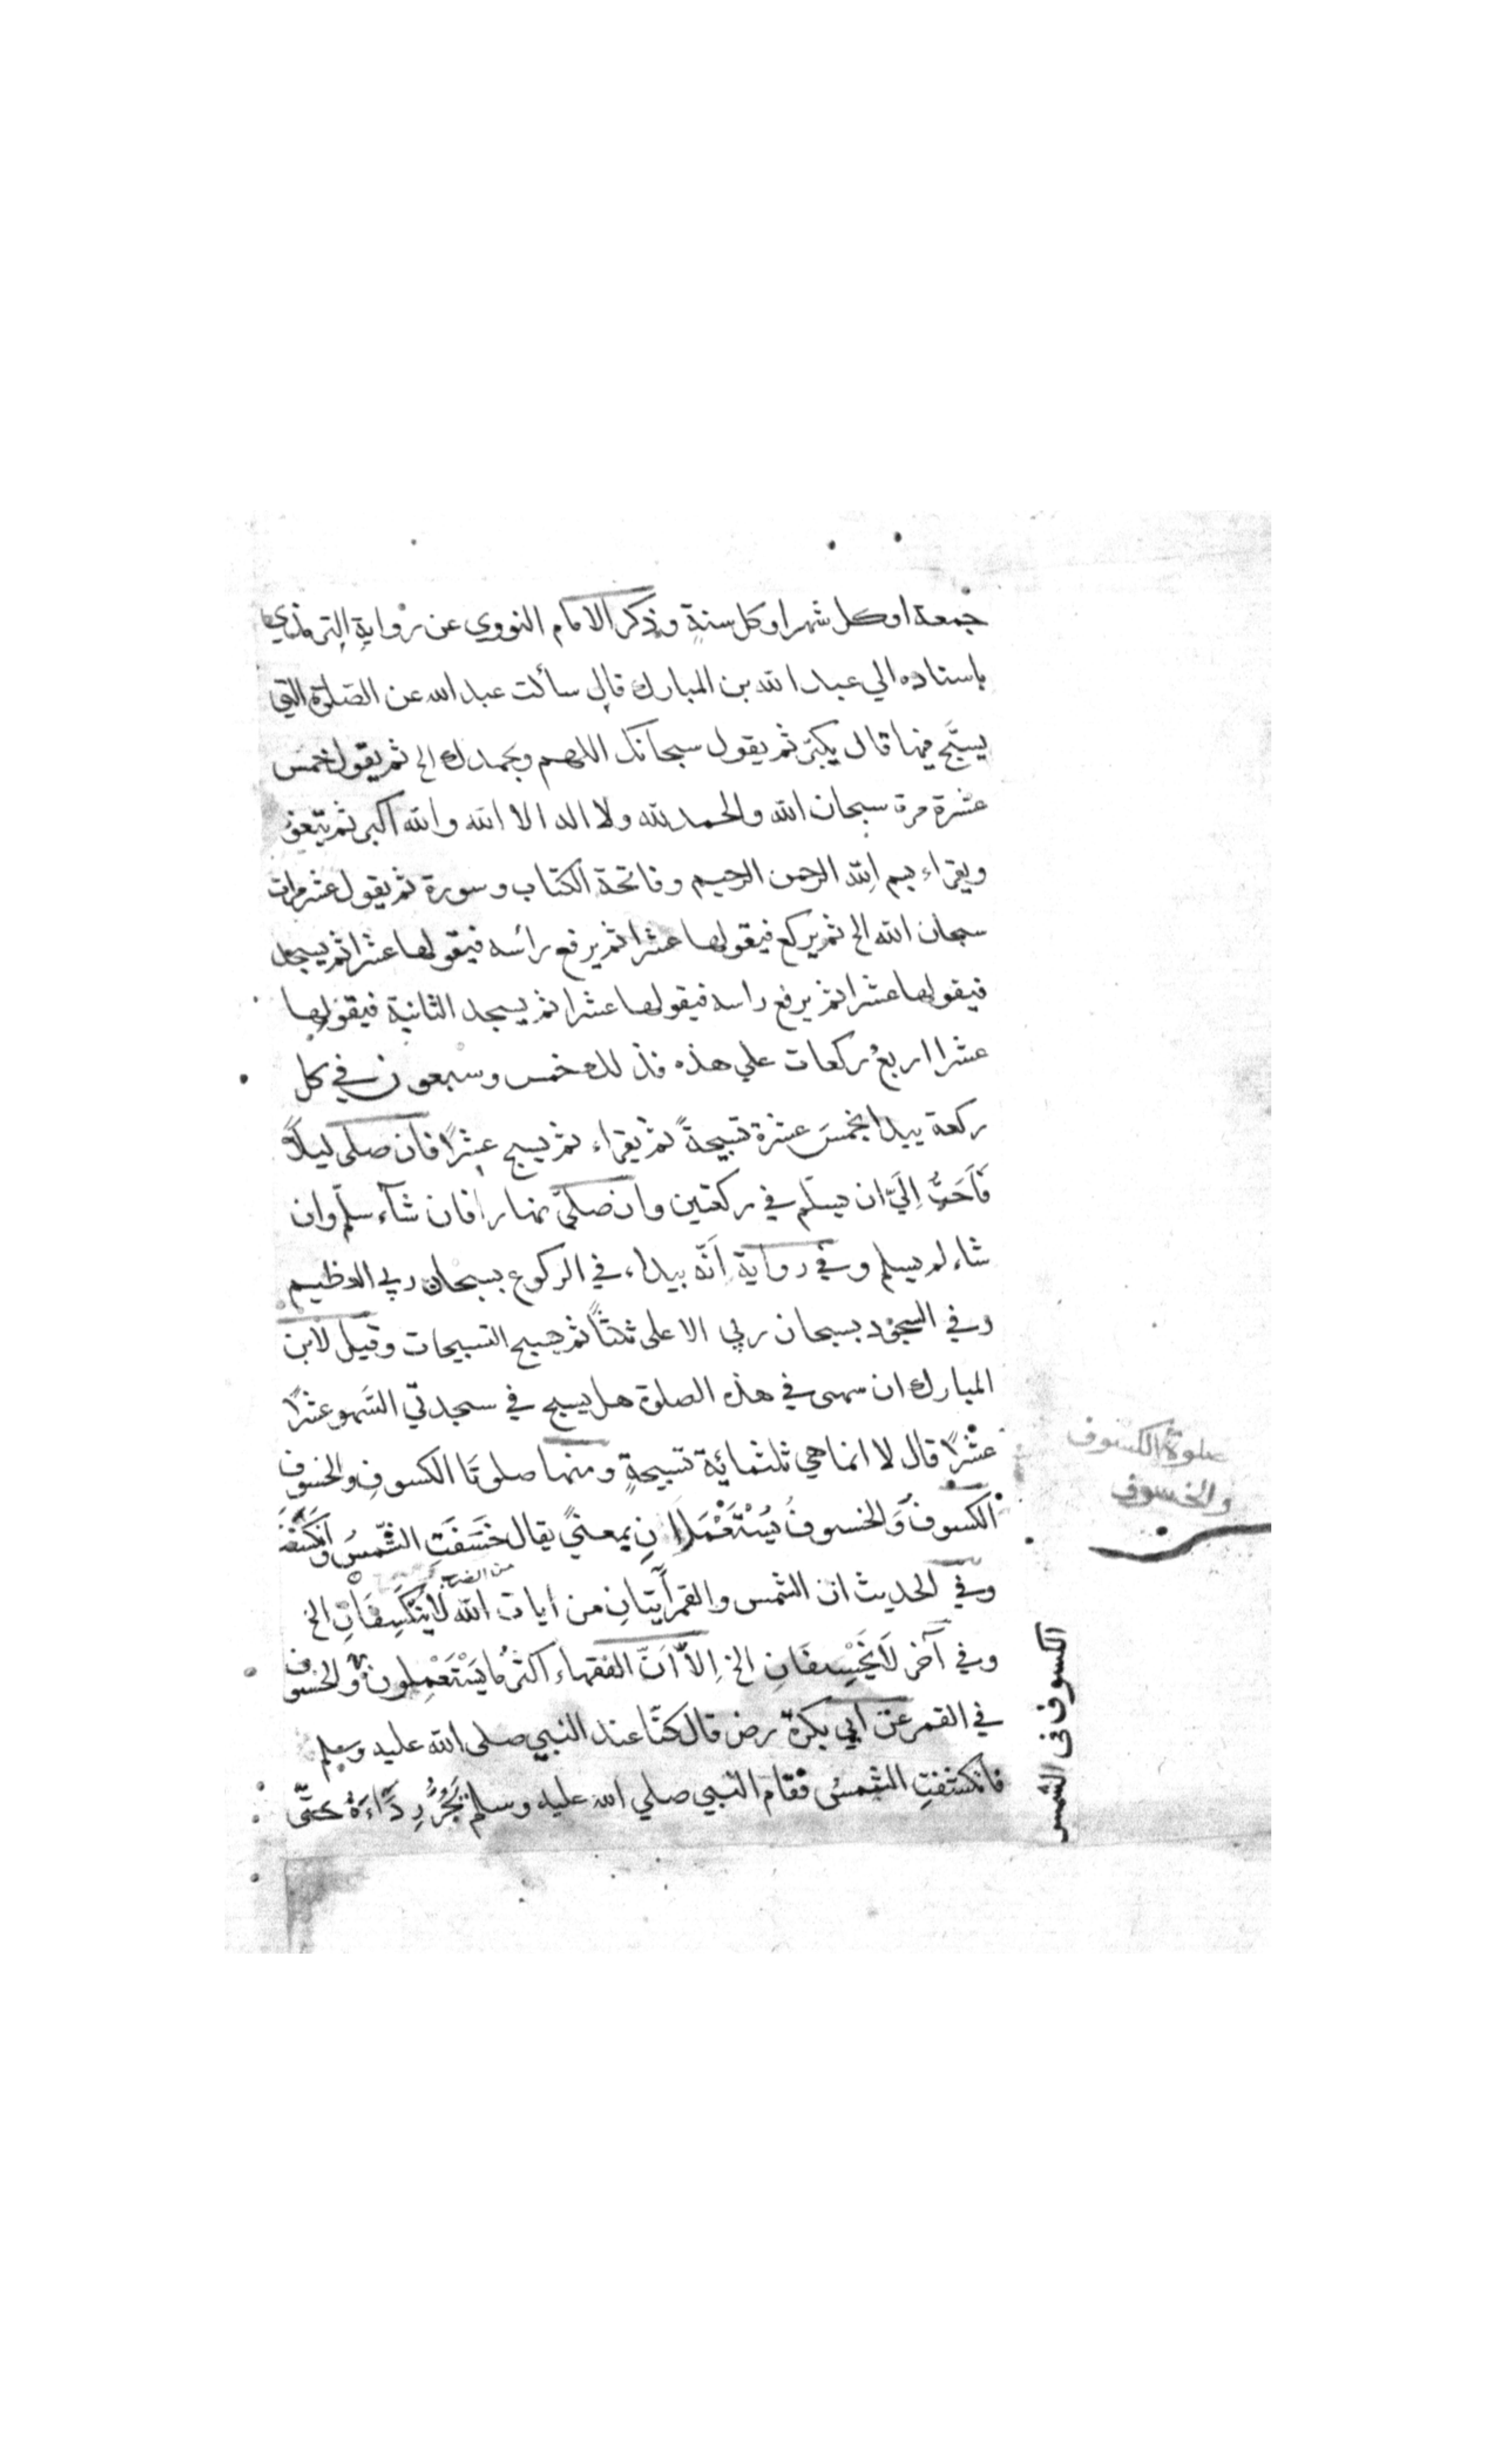 جمعة او كل شهر او كل سنةٍ وذكر الامام النووي عن روايةِ الترمذي
باسناده الي عبد الله بن المبارك قال سألت عبد الله عن الصّلوة التي
يسبَّح فيها قال يكبّر ثم يقول سبحانك اللهم وبحمدك الخ ثم يقول خمسَ
عشرة مرة سبحان الله والحمد لله ولا اله الا الله والله اكبر ثم يتعوّذ
ويقراء بسم الله الرحمن الرحيم وفاتحة الكتاب وسورة ثم يقول عشر مرات
سبحان الله الخ ثم يركع فيقولها عشرا ثم يرفع رأسه فيقولها عشرا ثم يسجد
فيقولها عشرا ثم يرفع راسه فيقولها عشرا ثم يسجد الثانية فيقولها
عشرا اربعُ ركعات علي هذه فذلك خمس وسبعون في كل
ركعة يبدا بخمسَ عشرة تسبيحةً ثم يقراء ثم يسبح عشرًا فان صلى ليلاً
فَاَحَبُّ اِلَيَّ ان يسلّم في ركعتين وان صلّى نهارا فان شآء سلّم وان
شاء لم يسلم وفي رواية اَنّه يبداء في الركوع بسبحان ربي العظيم
وفي السجود بسبحان ربي الاعلى ثلثاً ثم يسبح التسبيحات وقيل لابن
المبارك ان سهى في هذه الصلوة هل يسبح في سجدتي السَهو عشرًا
عشْرًا قال لا انما هي ثلثمائة تسبيحةٍ ومنها صلوتَا الكسوفِ والخسوف
الكسوفُ وَالخسوفُ يُسْتَعْمَلَانِ بمعنيً يقال خَسَفَتِ الشّمسُ وانكسَفَتْ
وفي الحديث ان الشمس والقمر آيتانِ من ايات الله لا يَنْكَسِفَانِ الخ
وفي آخر لَا يَخْسِفَانِ الخ اِلاَّ اَنّ الفقهاء اكثرُ ما يَسْتَعْمِلون والخسوف
في القمر عن ابي بكرة رض قال كنّا عند النبي صلى الله عليه وسلم
فانكسفتِ الشمسُ فقام النبي صلي الله عليه وسلم يَجُرُّ رِدَاءَهُ حتّى
صلوة الكسوف
والخسوف
الكسوف فى الشمس